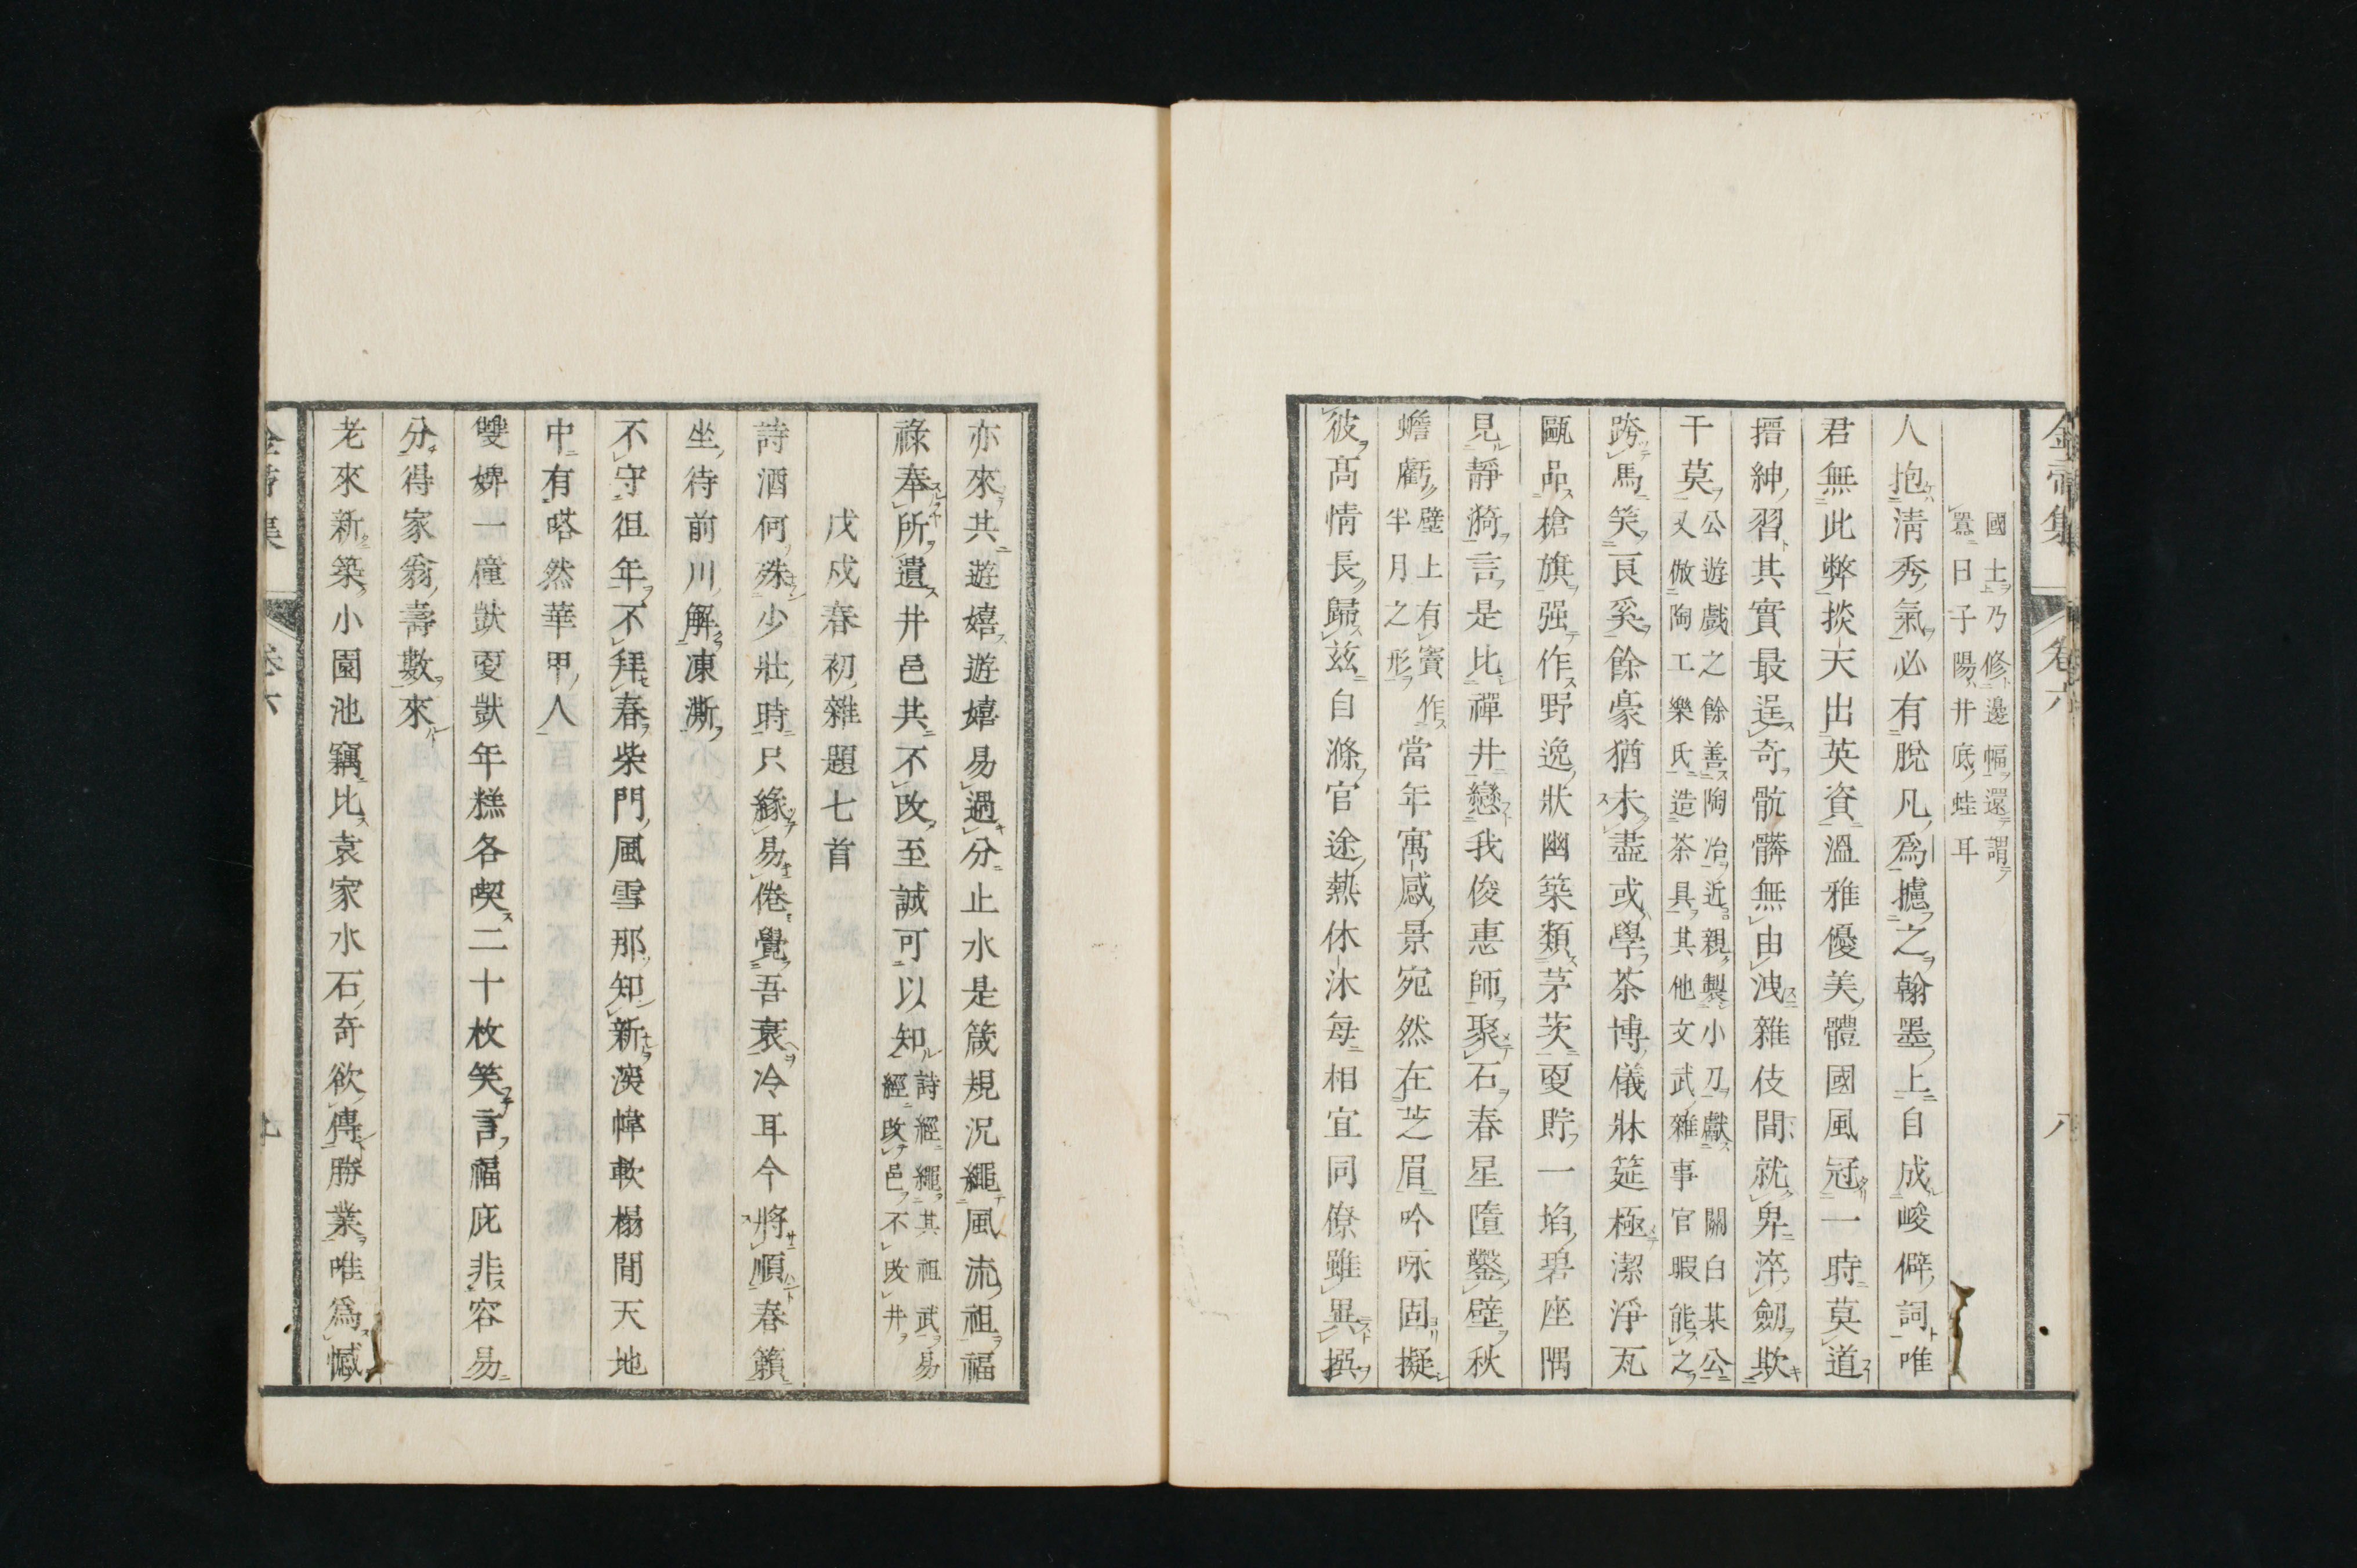 國士乃修邊幅還謂
囂曰子陽井底蛙耳
人抱淸秀氣必有脫凡爲攄之翰墨上自成峻僻詞唯
君無此弊掞天出英資溫雅優美體國風冠一時莫道
搢紳習其實最逞奇骯髒無由洩雜伎間就卑淬劒欺
干莫公遊戲之餘善陶冶近親製小刀獻關白某公
又倣陶工樂氏造茶具其他文武雜事官暇能之
跨馬笑良奚餘豪猶未盡或學茶博儀牀筵極潔淨瓦
甌品槍旗强作野逸狀幽築類茅茨更貯一埳碧座隅
見靜漪言是比禪井戀我俊惠師聚石春星墮鑿壁秋
蟾虧壁上有竇作
半月之形
當年寓感景宛然在芝眉吟咏固擬
彼高情長歸茲自滌官途熱休沐每相宜同僚雖異撰
亦來共遊嬉遊嬉易過分止水是箴規況繩風流祖福
祿奉所遺井邑共不改至誠可以知詩經繩其祖武易
經改邑不改井
戊戌春初雜題七首
詩酒何殊少壯時只緣易倦覺吾衰冷耳今將順春籟
坐待前川解凍澌
不守徂年不拜春柴門風雪那知新深幃軟榻間天地
中有嗒然華甲人
雙婢一僮獃更獃年糕各喫二十枚笑言福庇非容易
分得家翁壽數來
老來新築小園池竊比袁家水石奇欲傳勝業唯爲憾
卷六
八